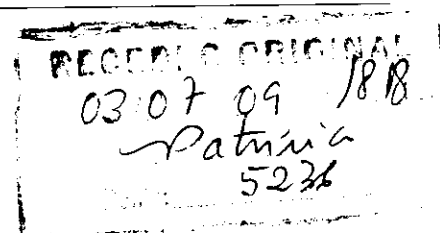 RECEBI O ORIGINAL
03 07 09
Patrícia
5236